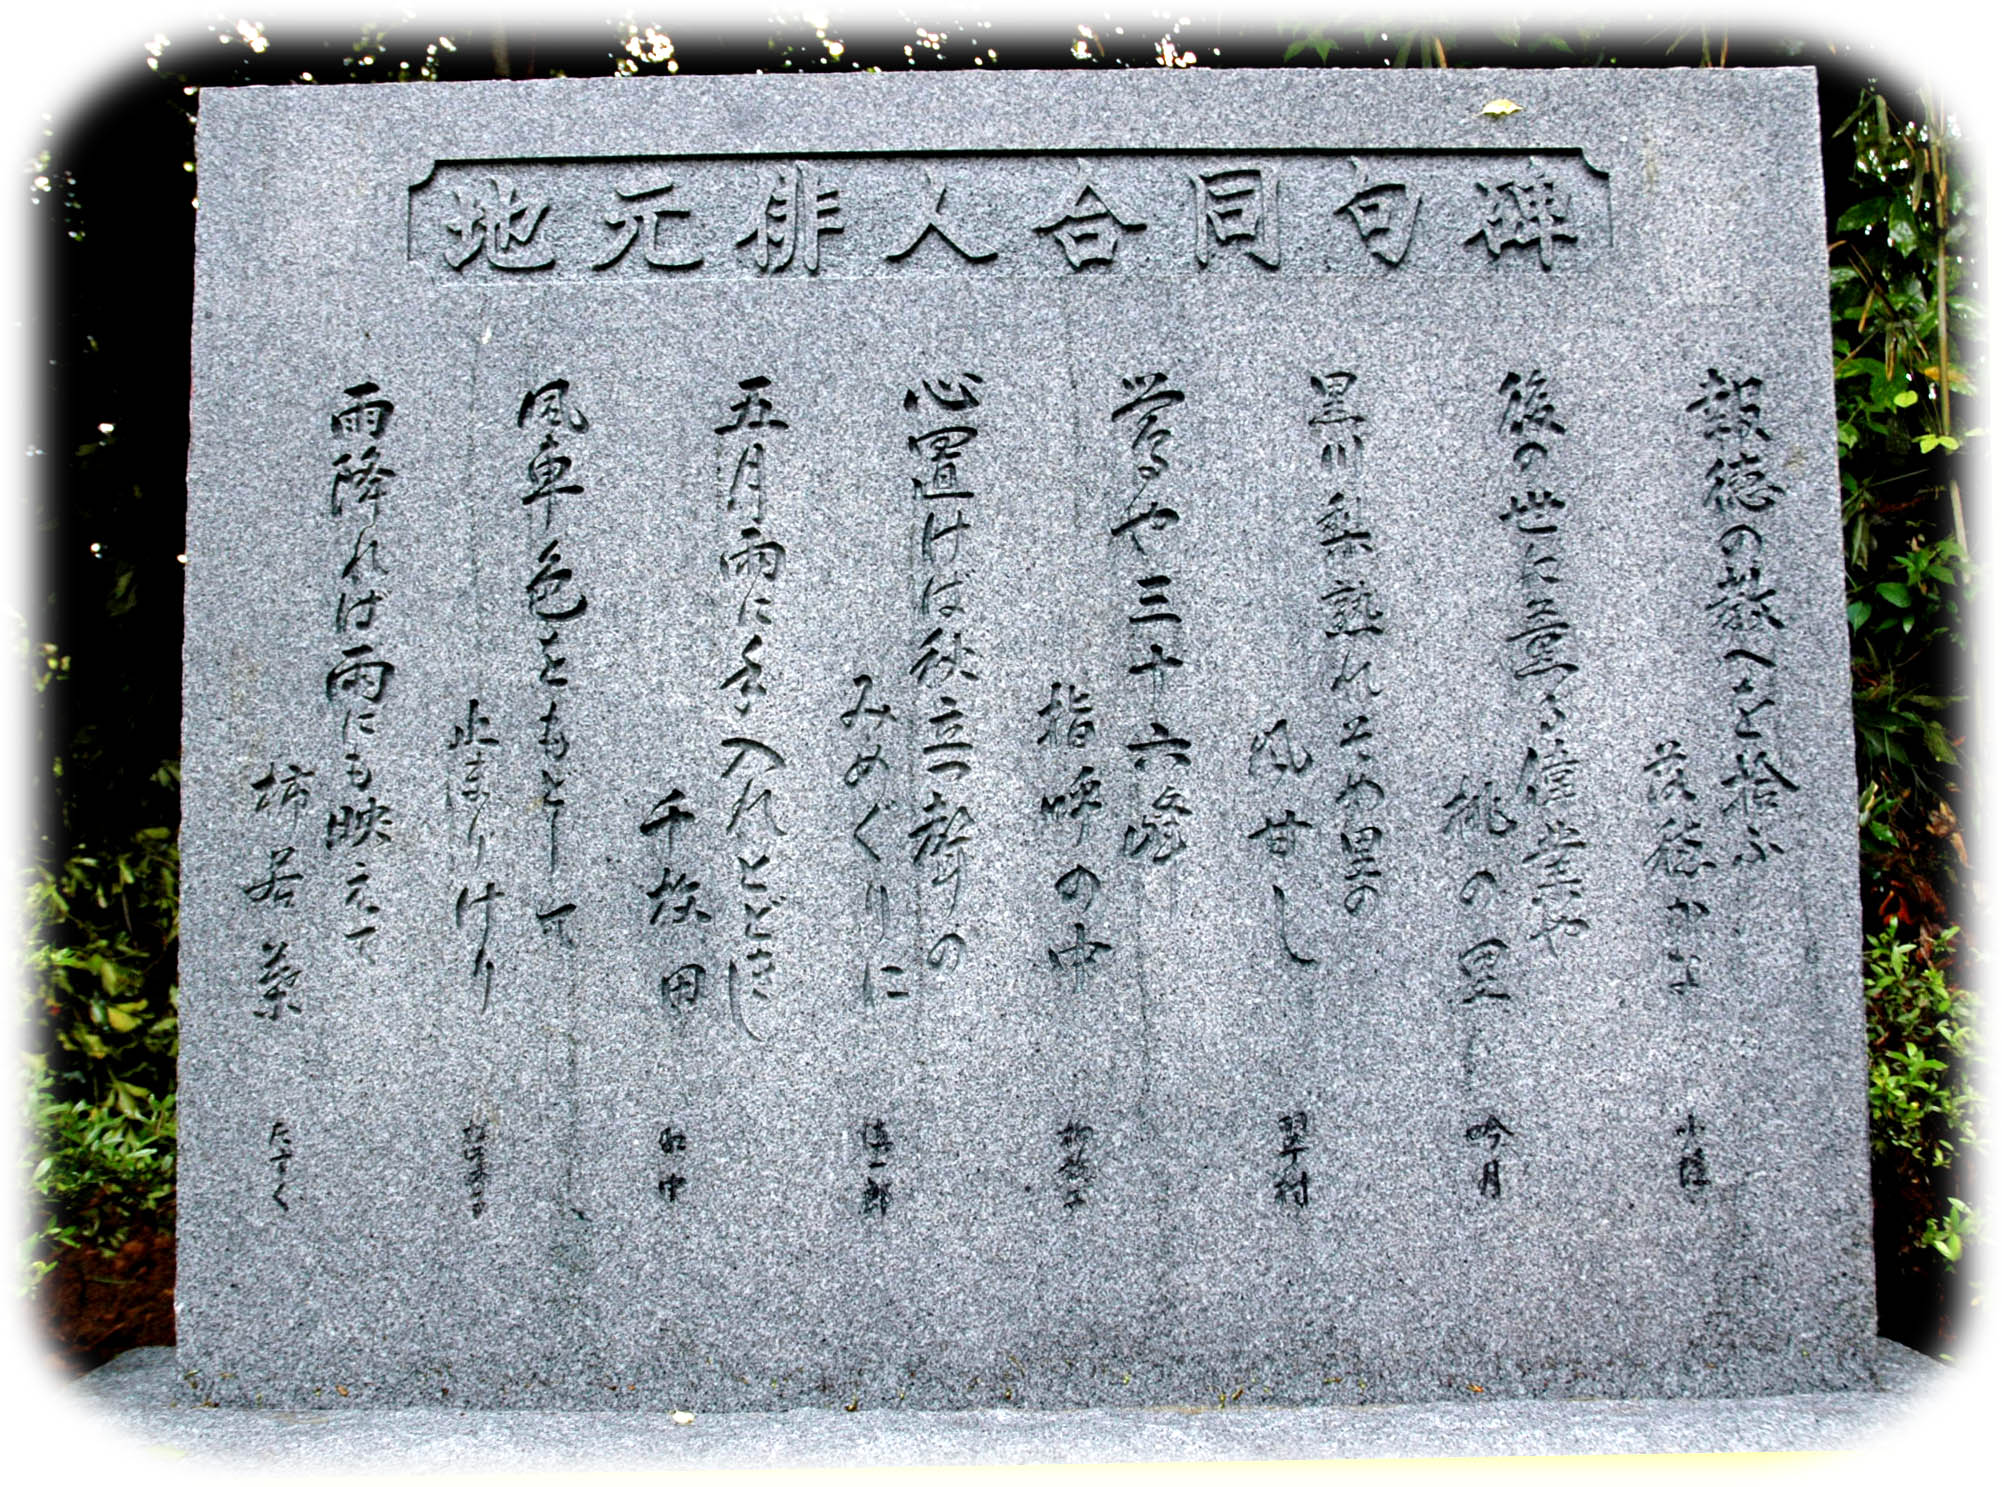 地元俳人合同句碑
報徳の教へを拾ふ
落穂かな
後の世に薫る偉堂や
桃の里
吟月
黒川梨熟れそめ里の
風甘し
翠村
登るや三十六峰
指呼の中
心置けば秋立つ声の
みめぐりに
慎一郎
五月雨に手入れとどきし
千枚田
風車色をもどして
止まりけり
雨降れば雨にも映えて
柿若葉
たすく